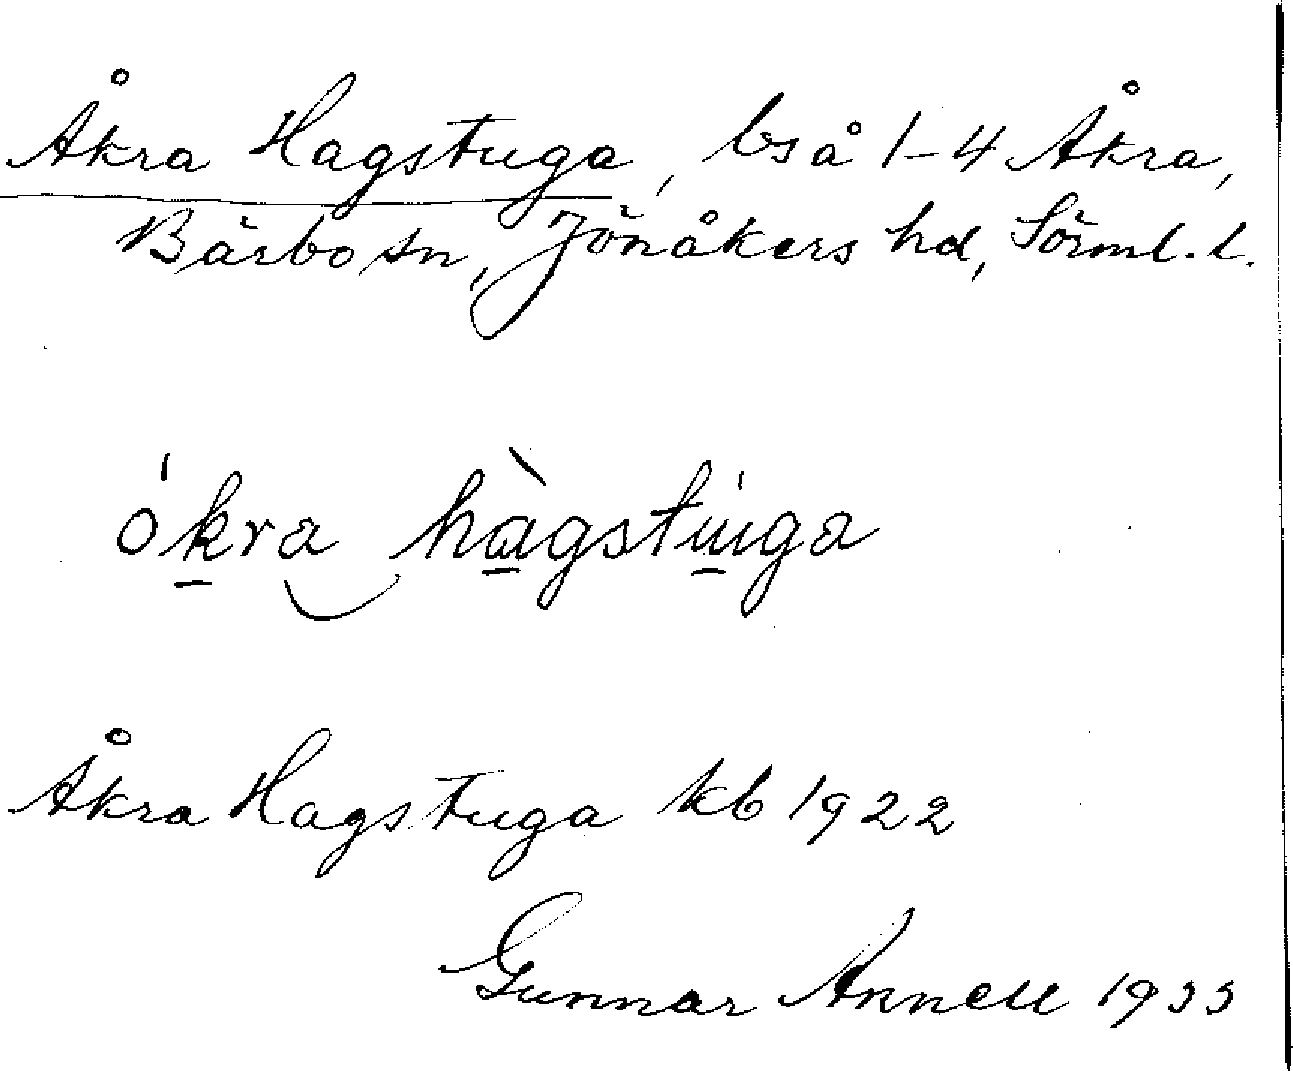 Åkra Hagstuga, bs å 1-4 Åkra,
Bärbo sn, Jönåkers hd, Sörml. l.
ókra hàgstuga
Åkra Hagstuga kb 1922
Gunnar Annell 1933